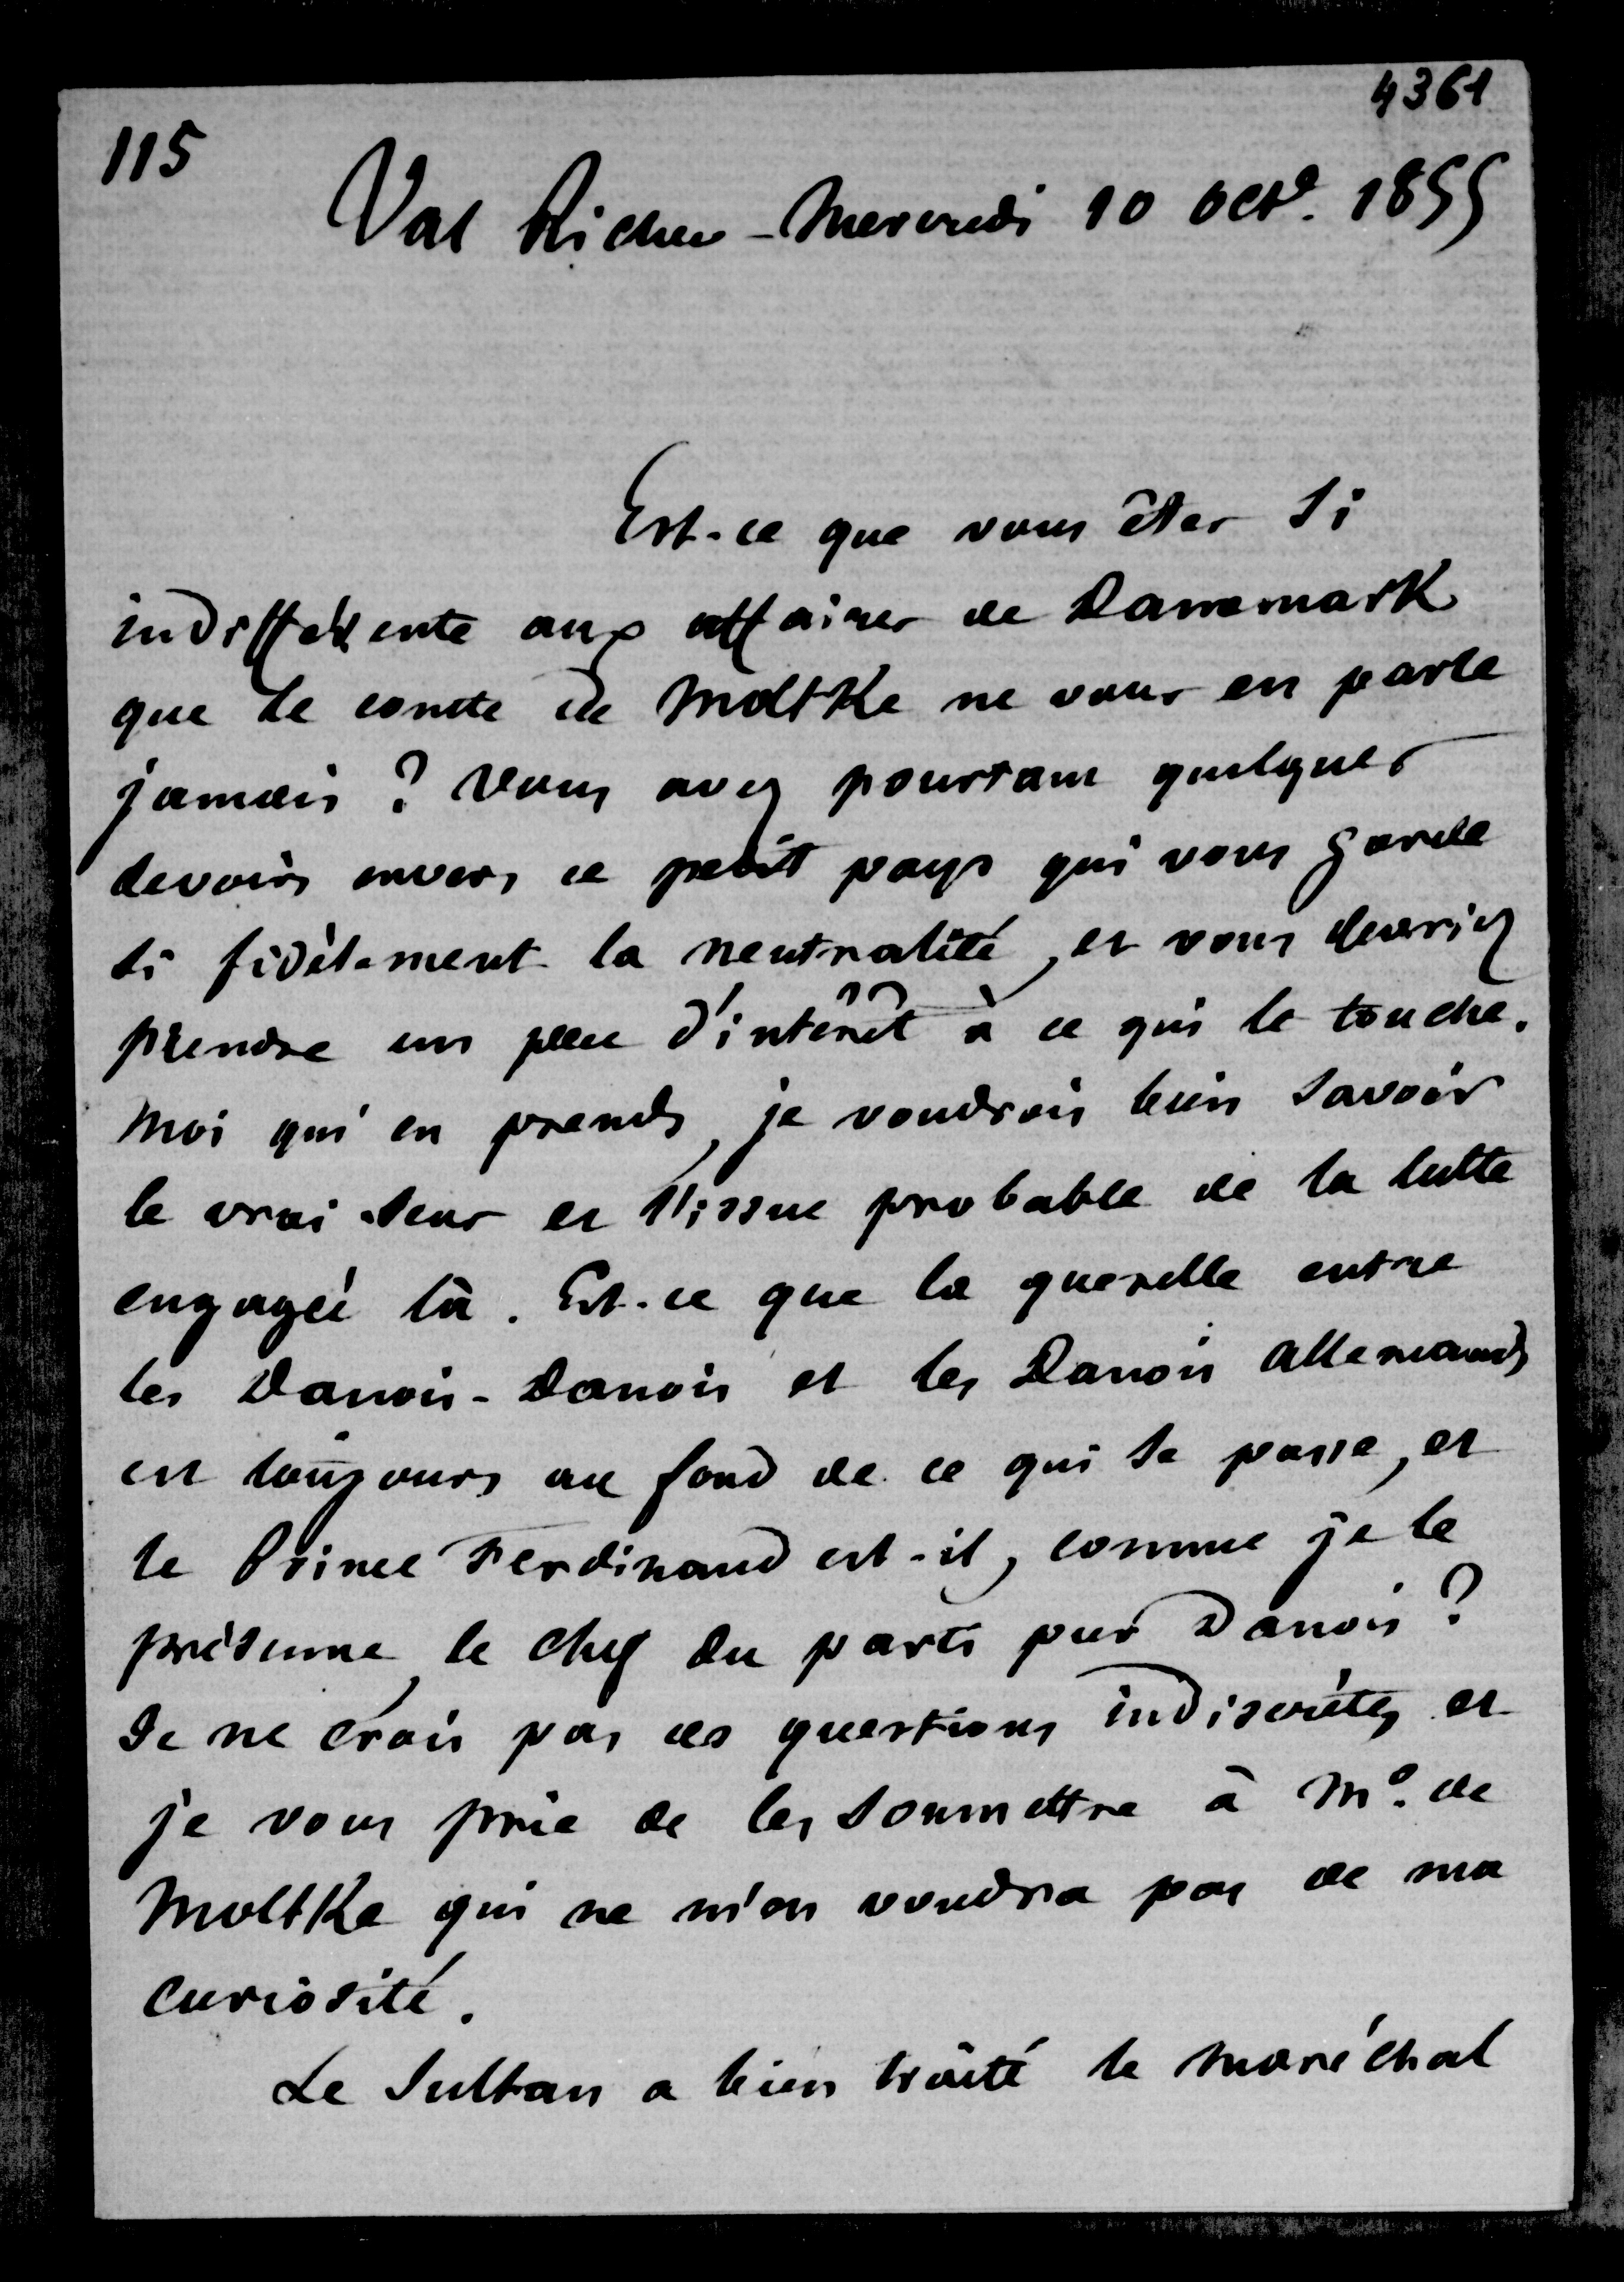 4361
115
Val Richer - Mercredi 10 oct<sup>e</sup>. 1855
Est-ce que vous êtes si
indifférente aux affaires de Danemark
que le comte de Moltke ne vous en parle
jamais ? Vous avez pourtant quelques
devoirs envers ce petit pays qui vous garde
si fidèlement la neutralité, et vous devriez
prendre un peu d'intérêt à ce qui le touche.
Moi qui en prends, je voudrois bien savoir
le vrai sens et l'issue probable de la lutte
engagée là. Est-ce que la querelle entre
les Danois-Danois et les Danois allemands
est toujours au fond de ce qui se passe, et
le Prince Ferdinand est-il, comme je le
présume, le chef du parti pur Danois ?
Je ne crois pas ces questions indiscrètes et
je vous prie de les soumettre à M<sup>r</sup>. de
Moltke qui ne m'en voudra pas de ma
curiosité.
Le Sultan a bien traité le maréchal